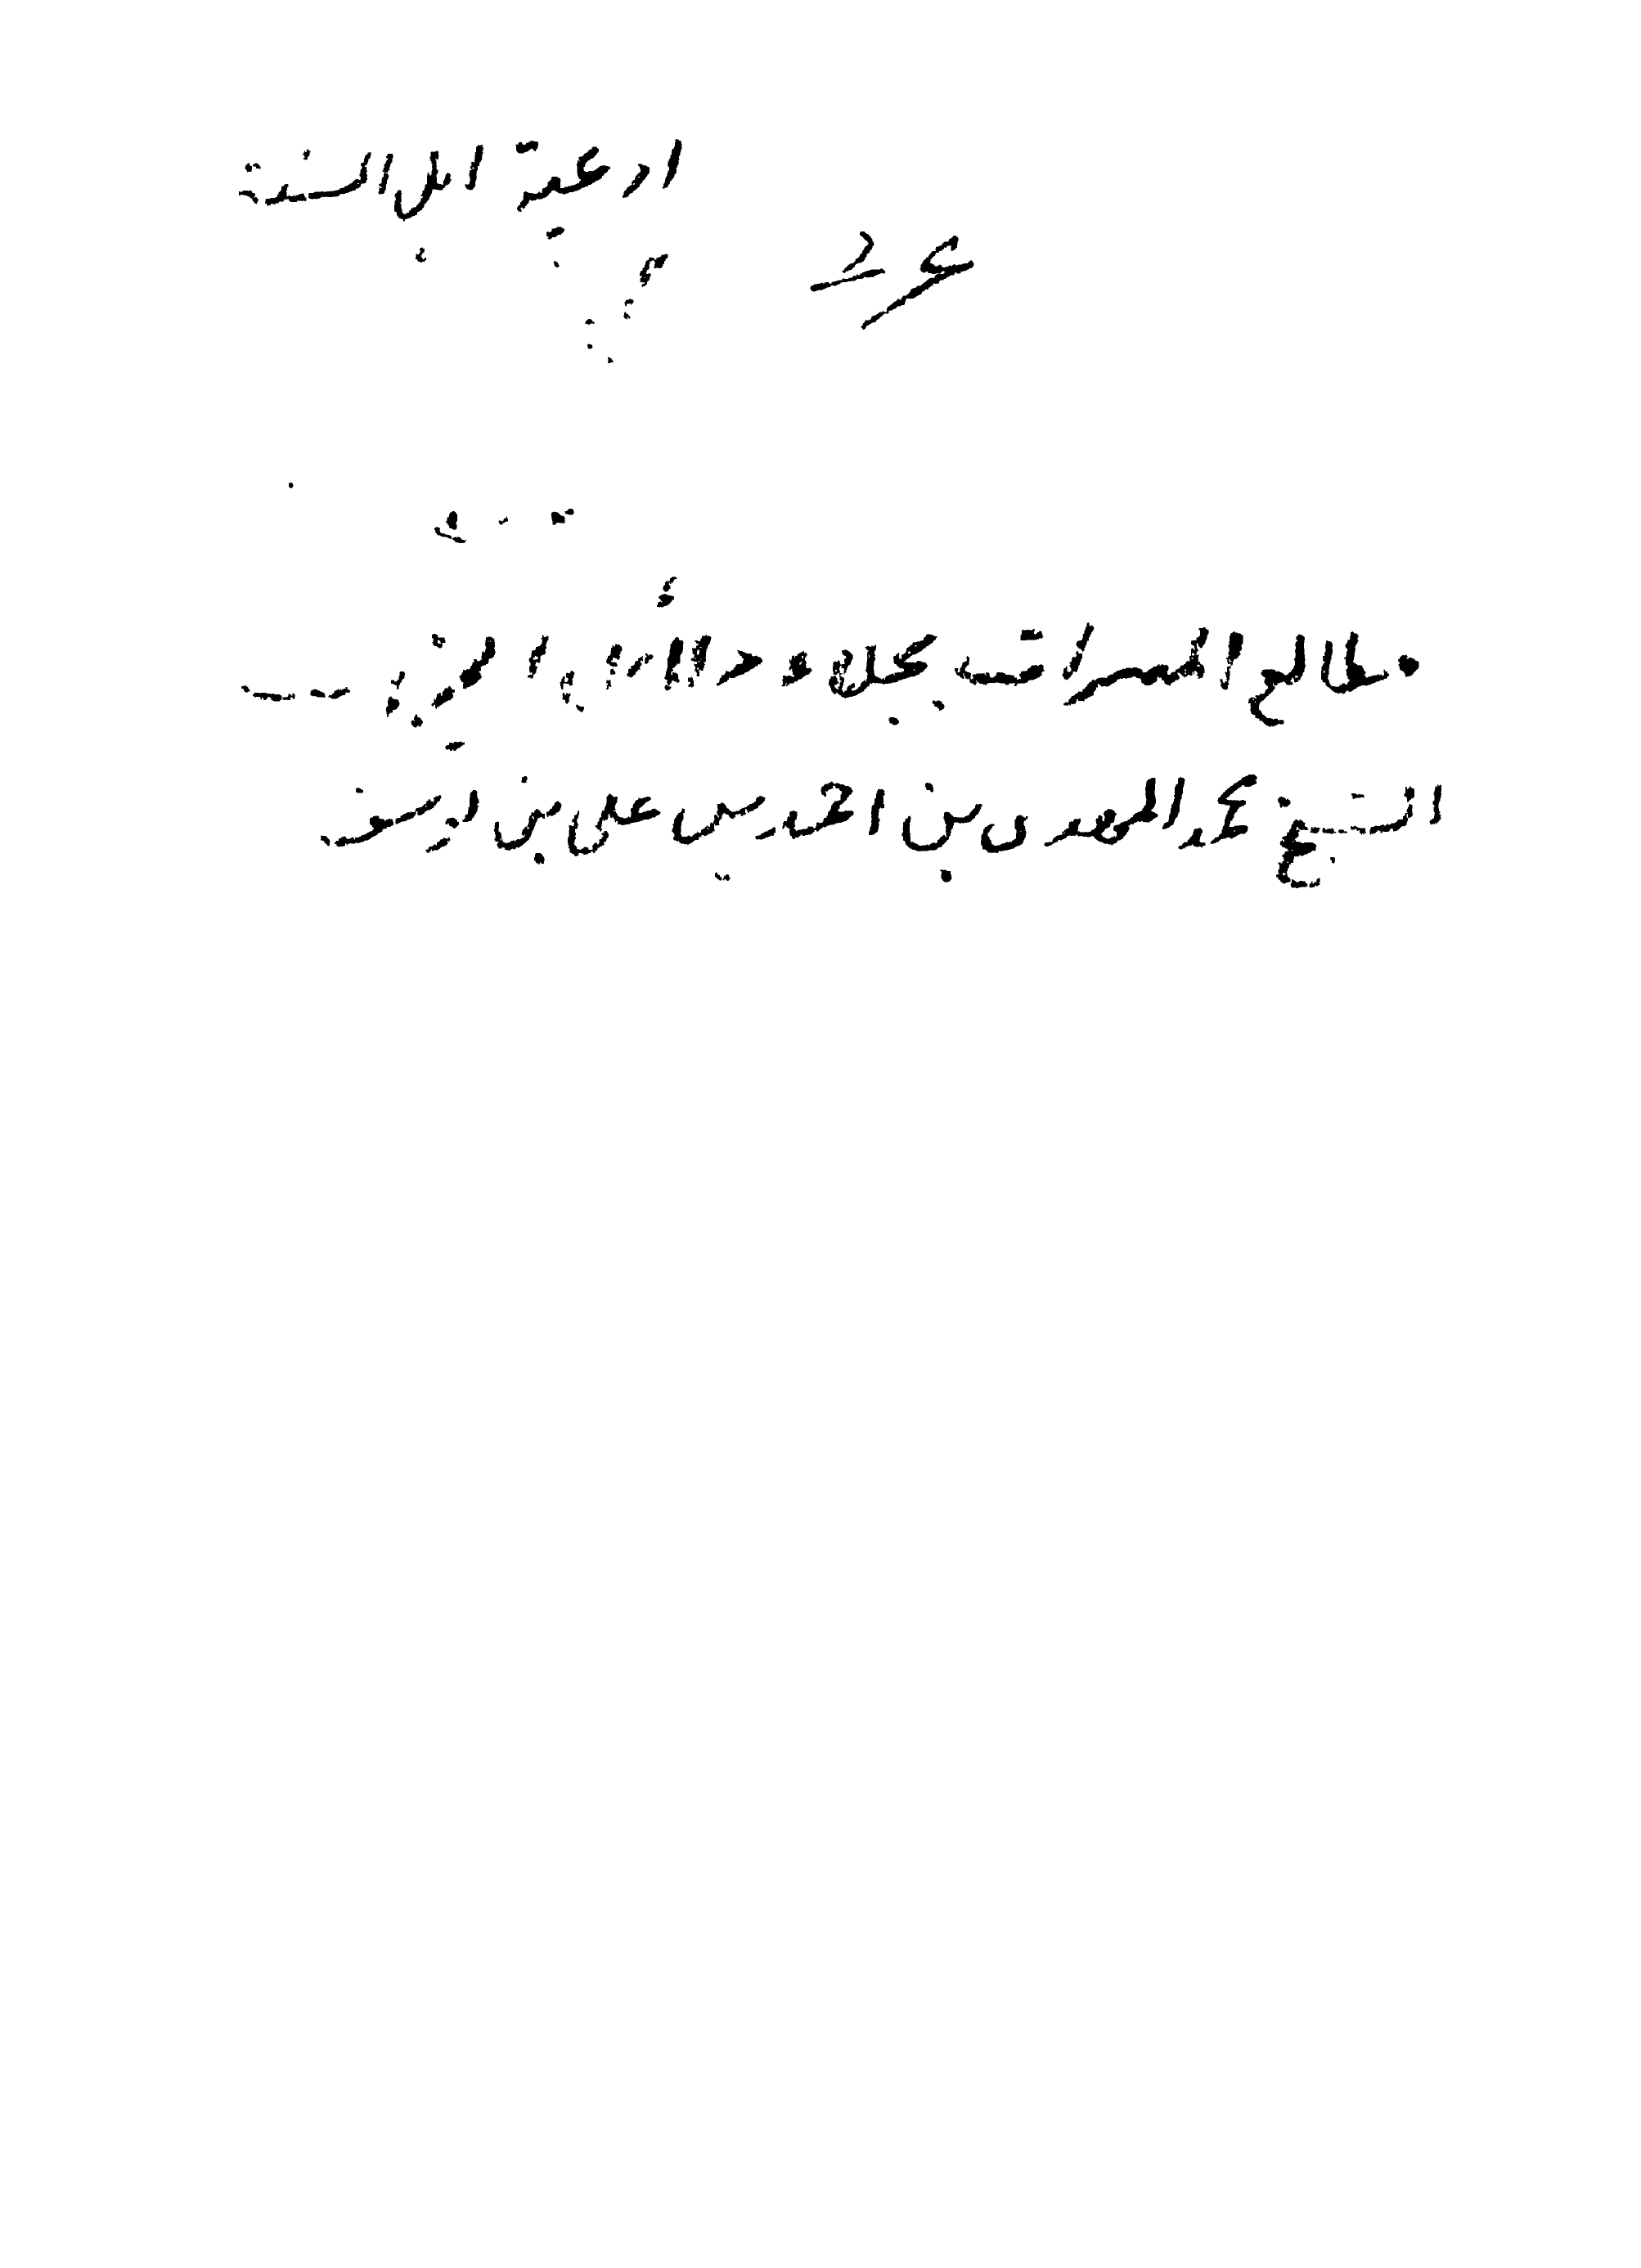 ادعية اهل السنة
عربي
مطالع المسرات بجلاء دلائل الخيرات
الشيخ محمد المهدى بن احمد بن على بن يوسف